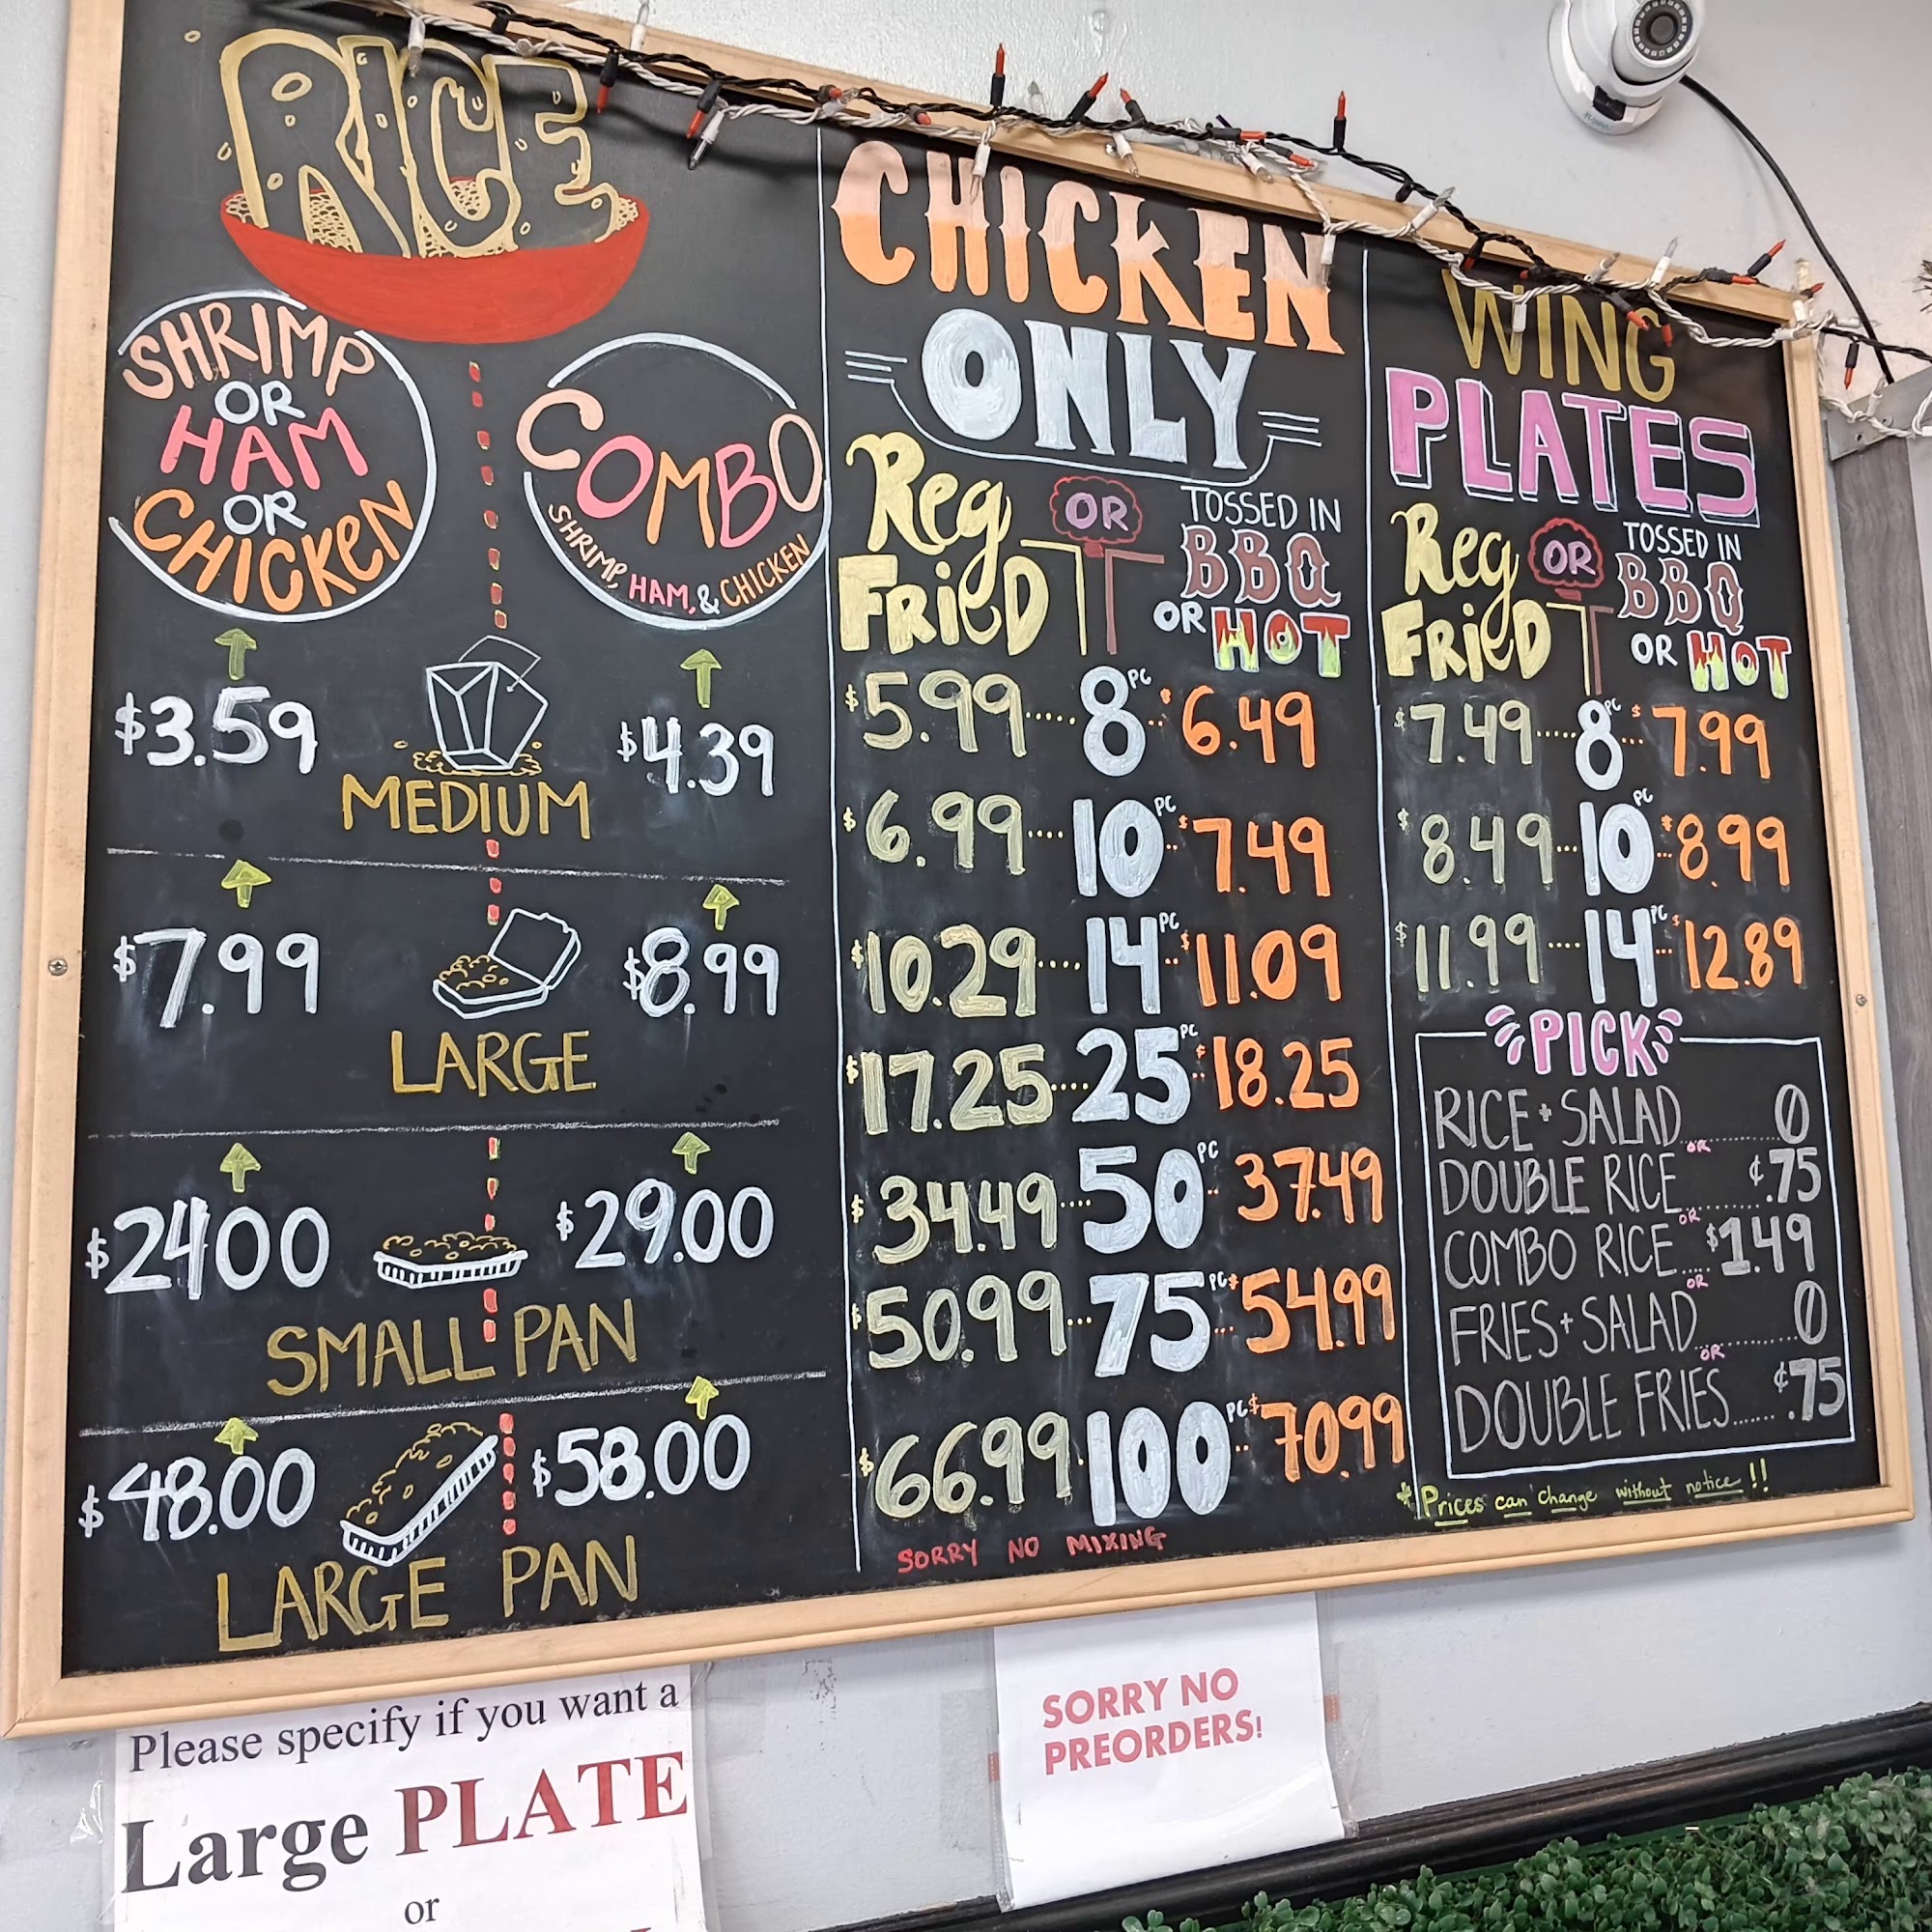 RICE
SHRIMP
OR
HAM
OR
CHICKEN
COMBO
SHRIMP, HAM, & CHICKEN
$3.59 MEDIUM $4.39
$7.99 LARGE $8.99
$2400 SMALL PAN $29.00
$48.00 LARGE PAN $58.00
CHICKEN
ONLY
Reg
FRieD
OR
TOSSED IN
BBQ
OR HOT
$5.99.....8PC..$6.49
$6.99....10PC.$7.49
$10.29....14PC.$11.09
$17.25....25PC..$18.25
$34.49...50PC. 37.49
$50.99...75PC...$54.99
$66.99.100PC..$70.99
SORRY NO MIXING
WING
PLATES
Reg
FRieD
OR
TOSSED IN
BBQ
OR HOT
$7.49.....8PC...$7.99
$8.49...10PC...$8.99
$11.99....14PC..$12.89
PICK
RICE + SALAD 0
OR
DOUBLE RICE ¢.75
OR
COMBO RICE $1.49
OR
FRIES + SALAD 0
OR
DOUBLE FRIES ¢.75
*Prices can change without notice!!
Please specify if you want a
Large PLATE
or
SORRY NO
PREORDERS!